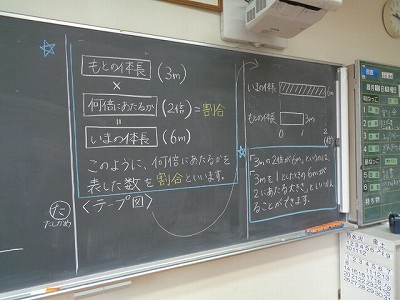 もとの体長 (3m)
×
何倍にあたるか (2倍)＝割合
＝
いまの体長 (6m)
このように、何倍にあたるかを
表した数を割合といいます。
た
たしかめ
〈テープ図〉
いまの体長 6m
もとの体長 3m
0 1 2
(倍)
「3mの2倍が6m」というのは、
「3mを1としたとき6mが
2にあたる大きさ」といいかえ
ることができます。